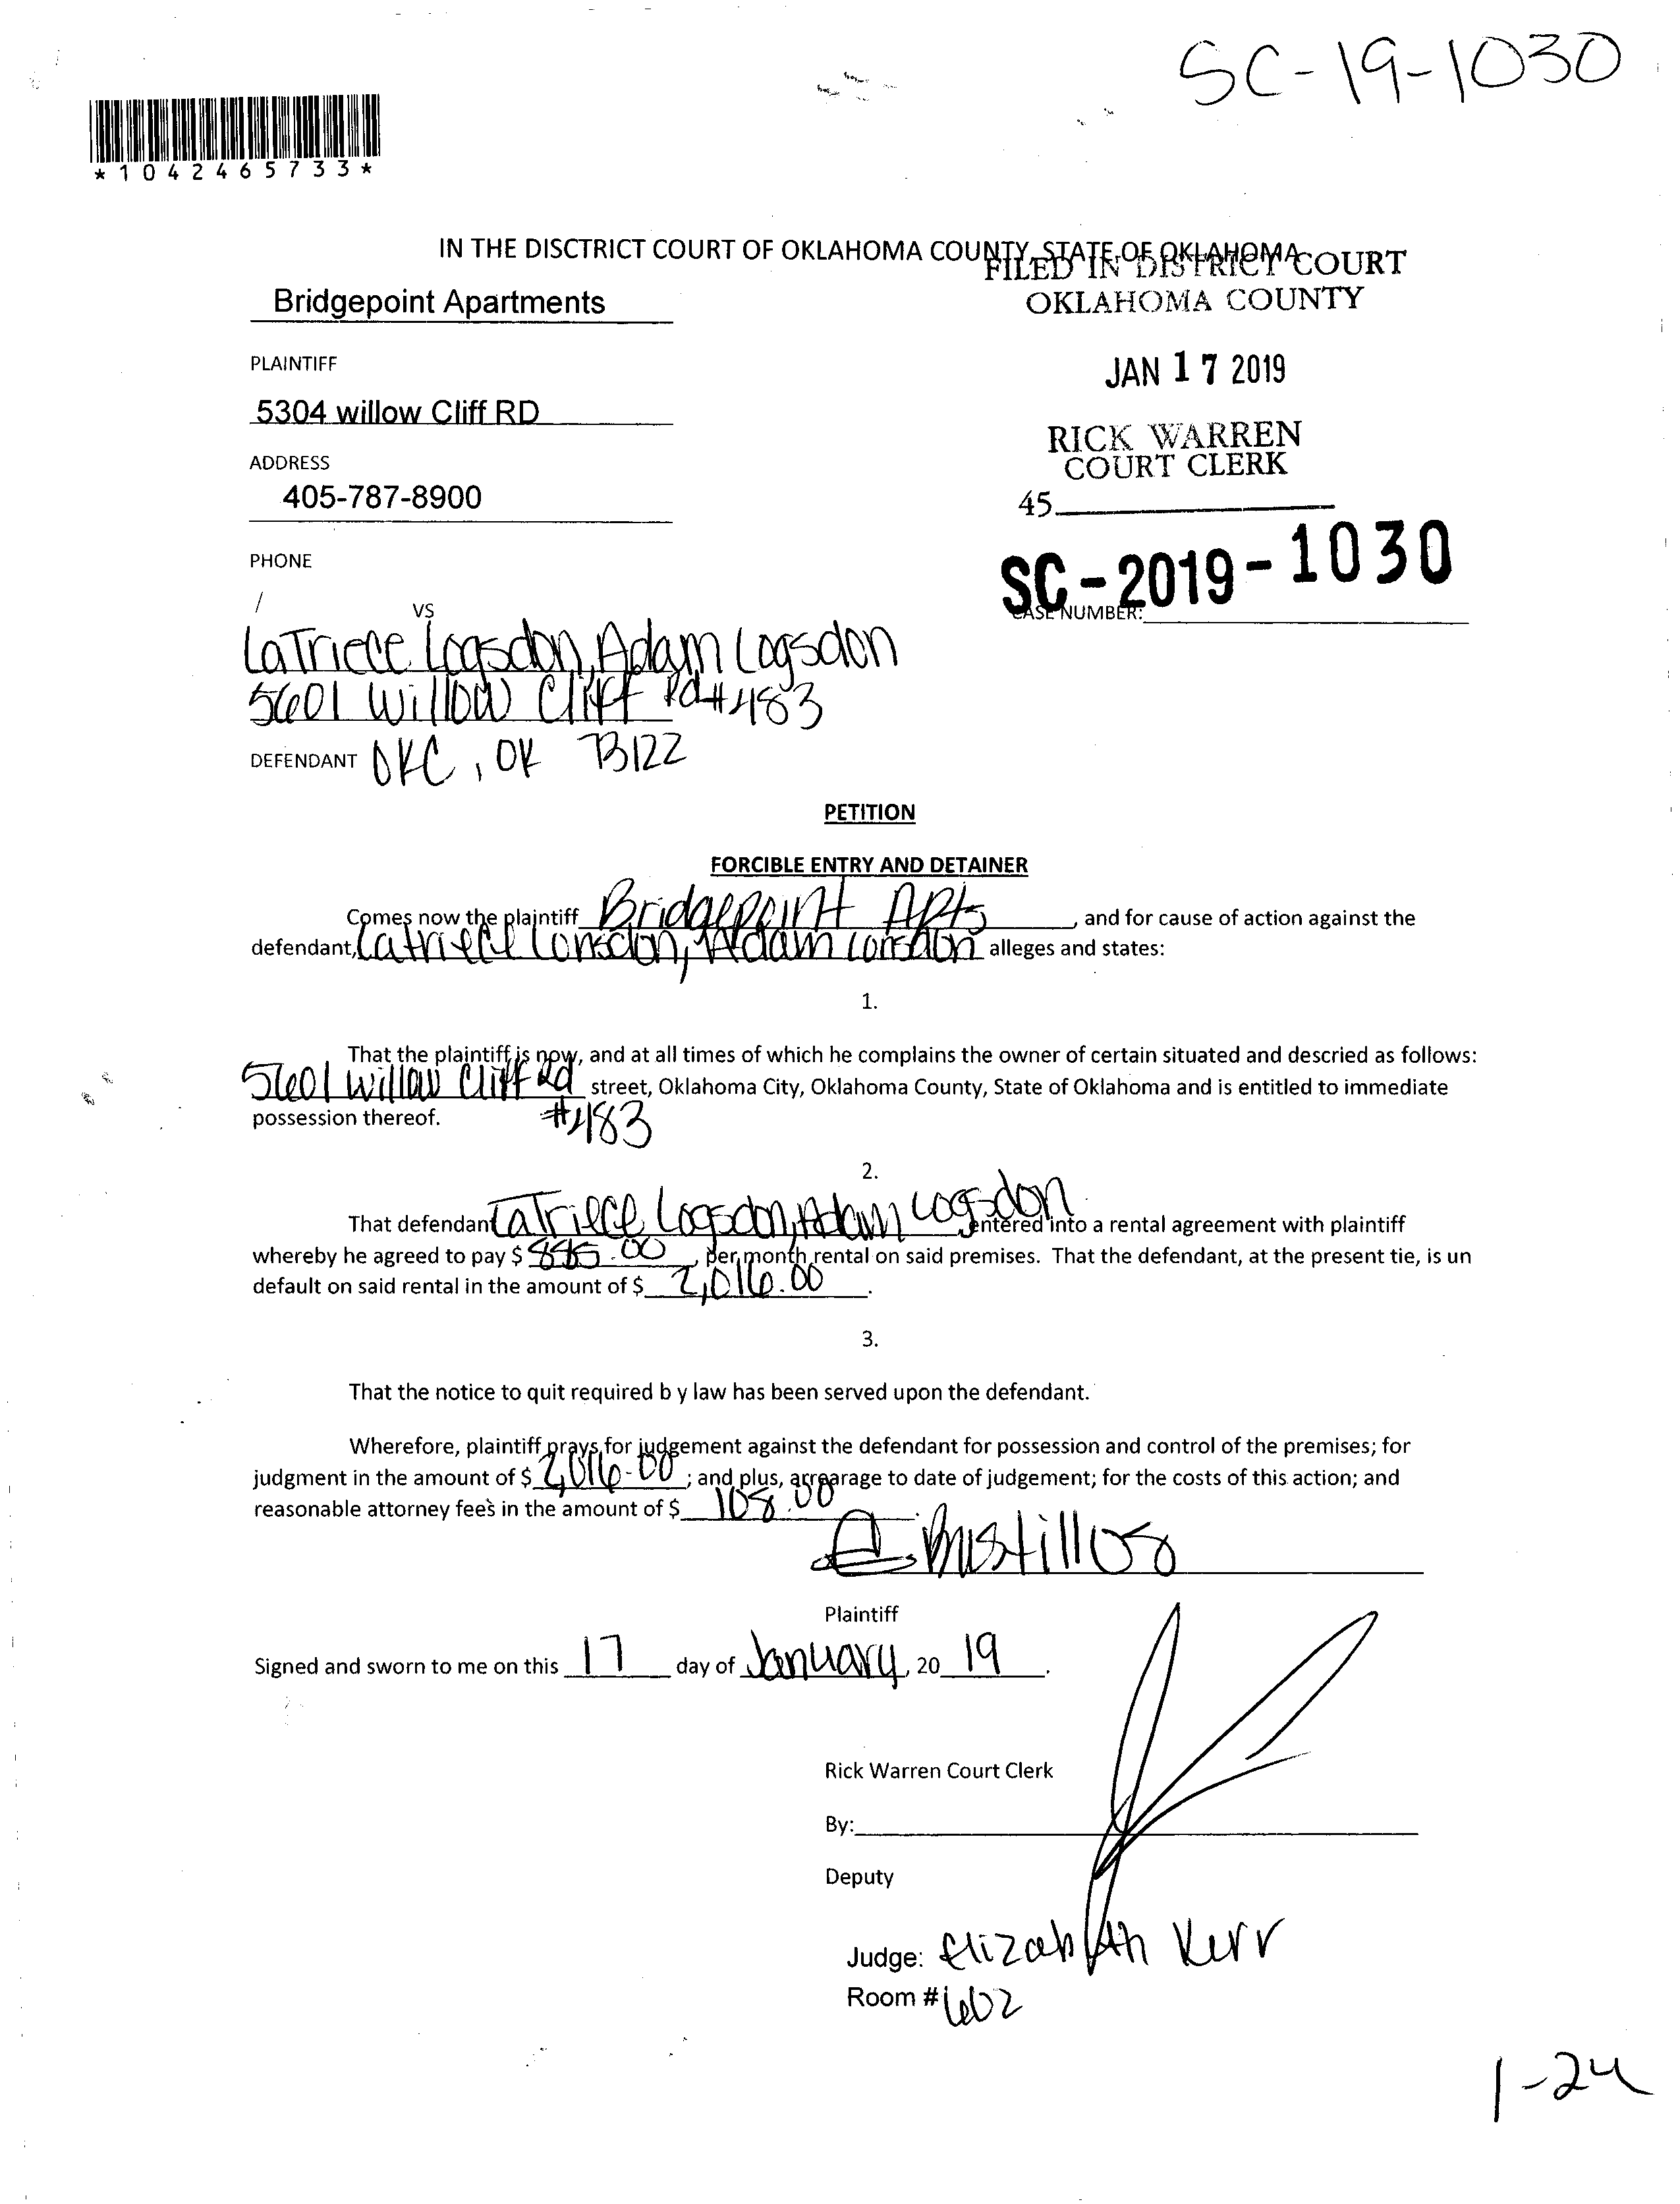 SC-19-1030
*1042465733*
IN THE DISCTRICT COURT OF OKLAHOMA COUNTY, STATE OF OKLAHOMA
FILED IN DISTRICT COURT
OKLAHOMA COUNTY
Bridgepoint Apartments
PLAINTIFF
JAN 17 2019
5304 willow Cliff RD
RICK WARREN
COURT CLERK
ADDRESS
405-787-8900
45
PHONE
SC-2019-1030
CASE NUMBER:
/
VS
LaTriece Logsdon, Adam Logsdon
5601 Willow Cliff Rd #483
DEFENDANT OKC, OK 73122
PETITION
FORCIBLE ENTRY AND DETAINER
Comes now the plaintiff Bridgepoint Apts, and for cause of action against the
defendant, Latriece Lonsdon, Adam Lonsdon alleges and states:
1.
That the plaintiff is now, and at all times of which he complains the owner of certain situated and descried as follows:
5601 Willow Cliff Rd street, Oklahoma City, Oklahoma County, State of Oklahoma and is entitled to immediate
possession thereof. #483
2.
That defendant LaTriece Logsdon, Adam Logsdon entered into a rental agreement with plaintiff
whereby he agreed to pay $ .00, per month rental on said premises. That the defendant, at the present tie, is un
default on said rental in the amount of $ 2,016.00.
3.
That the notice to quit required b y law has been served upon the defendant.
Wherefore, plaintiff prays for judgement against the defendant for possession and control of the premises; for
judgment in the amount of $ 2,016.00; and plus, arrearage to date of judgement; for the costs of this action; and
reasonable attorney fee's in the amount of $ 108.00.
Bustillos
Plaintiff
Signed and sworn to me on this 17 day of January, 20 19.
Rick Warren Court Clerk
By:
Deputy
Judge: Elizabeth Kerr
Room # 602
1-24